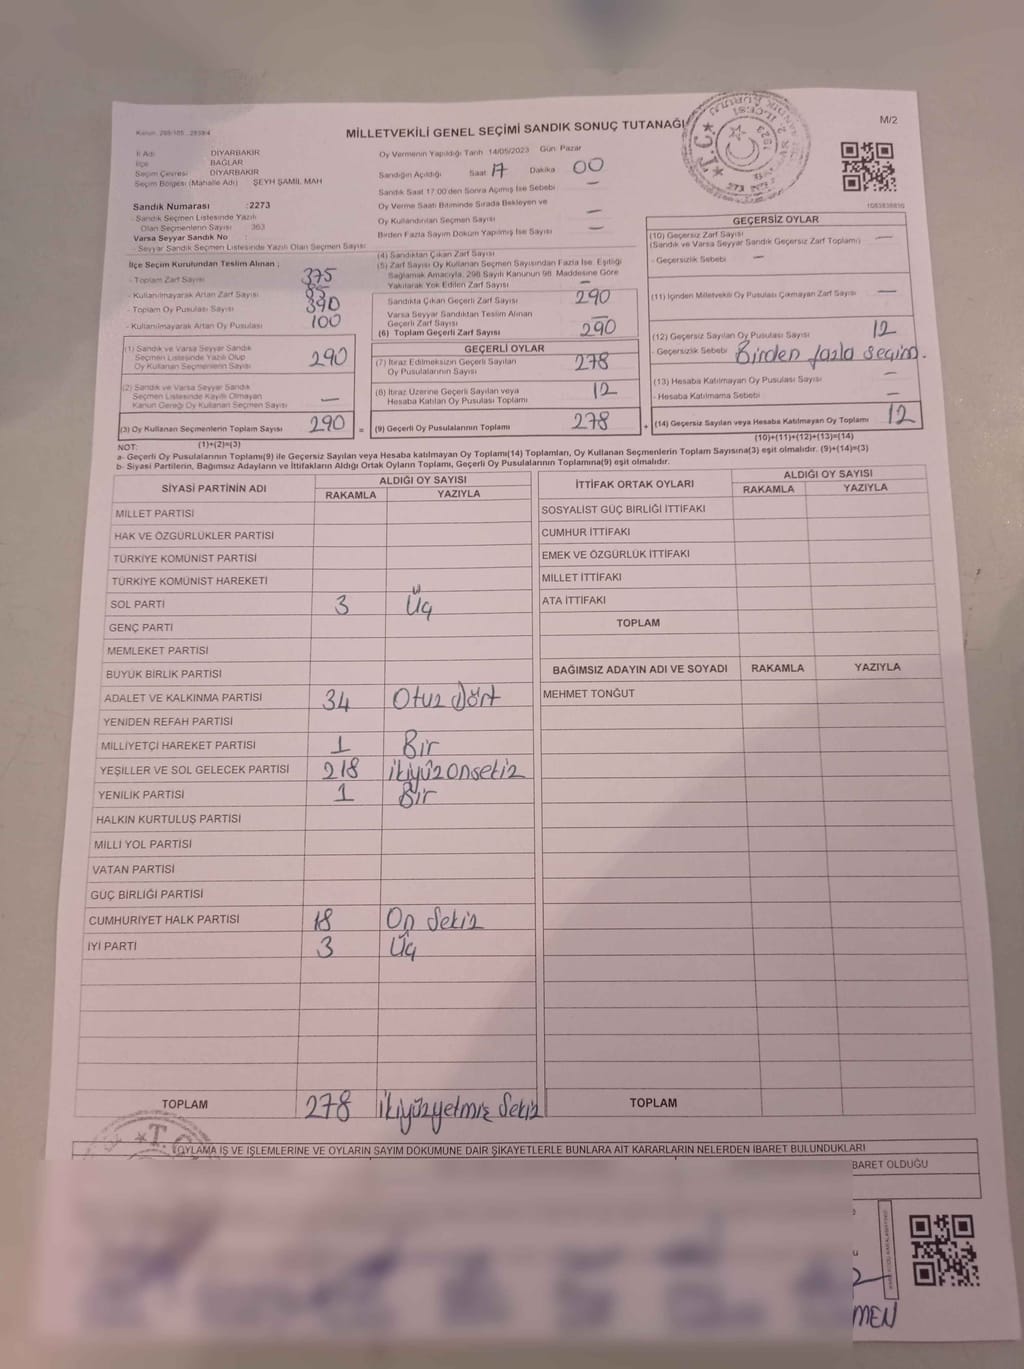 Kanun: 298/105 , 2839/4
MİLLETVEKİLİ GENEL SEÇİMİ SANDIK SONUÇ TUTANAĞI
M/2
İl Adı DİYARBAKIR
İlçe BAĞLAR
Seçim Çevresi DİYARBAKIR
Seçim Bölgesi (Mahalle Adı) ŞEYH ŞAMİL MAH
Oy Vermenin Yapıldığı Tarih 14/05/2023 Gün Pazar
Sandığın Açıldığı Saat 17 Dakika 00
Sandık Saat 17:00'den Sonra Açılmış İse Sebebi —
Oy Verme Saati Bitiminde Sırada Bekleyen ve
Oy Kullandırılan Seçmen Sayısı —
Birden Fazla Sayım Döküm Yapılmış İse Sayısı —
1083838836
Sandık Numarası :2273
- Sandık Seçmen Listesinde Yazılı
Olan Seçmenlerin Sayısı : 363
Varsa Seyyar Sandık No :
- Seyyar Sandık Seçmen Listesinde Yazılı Olan Seçmen Sayısı
İlçe Seçim Kurulundan Teslim Alınan ;
- Toplam Zarf Sayısı 375
- Kullanılmayarak Artan Zarf Sayısı
- Toplam Oy Pusulası Sayısı 390
- Kullanılmayarak Artan Oy Pusulası 100
(1) Sandık ve Varsa Seyyar Sandık
Seçmen Listesinde Yazılı Olup
Oy Kullanan Seçmenlerin Sayısı 290
(2) Sandık ve Varsa Seyyar Sandık
Seçmen Listesinde Kayıtlı Olmayan
Kanun Gereği Oy Kullanan Seçmen Sayısı —
(3) Oy Kullanan Seçmenlerin Toplam Sayısı 290 =
(4) Sandıktan Çıkan Zarf Sayısı
(5) Zarf Sayısı Oy Kullanan Seçmen Sayısından Fazla İse, Eşitliği
Sağlamak Amacıyla, 298 Sayılı Kanunun 98. Maddesine Göre
Yakılarak Yok Edilen Zarf Sayısı —
Sandıkta Çıkan Geçerli Zarf Sayısı 290
Varsa Seyyar Sandıktan Teslim Alınan
Geçerli Zarf Sayısı —
(6) Toplam Geçerli Zarf Sayısı 290
GEÇERLİ OYLAR
(7) İtiraz Edilmeksizin Geçerli Sayılan
Oy Pusulalarının Sayısı 278
(8) İtiraz Üzerine Geçerli Sayılan veya
Hesaba Katılan Oy Pusulası Toplamı 12
(9) Geçerli Oy Pusulalarının Toplamı 278 +
GEÇERSİZ OYLAR
(10) Geçersiz Zarf Sayısı —
(Sandık ve Varsa Seyyar Sandık Geçersiz Zarf Toplamı)
- Geçersizlik Sebebi —
(11) İçinden Milletvekili Oy Pusulası Çıkmayan Zarf Sayısı —
(12) Geçersiz Sayılan Oy Pusulası Sayısı 12
- Geçersizlik Sebebi Birden fazla seçim.
(13) Hesaba Katılmayan Oy Pusulası Sayısı —
- Hesaba Katılmama Sebebi —
(14) Geçersiz Sayılan veya Hesaba Katılmayan Oy Toplamı 12
NOT: (1)+(2)=(3)
(10)+(11)+(12)+(13)=(14)
a- Geçerli Oy Pusulalarının Toplamı(9) ile Geçersiz Sayılan veya Hesaba katılmayan Oy Toplamı(14) Toplamları, Oy Kullanan Seçmenlerin Toplam Sayısına(3) eşit olmalıdır. (9)+(14)=(3)
b- Siyasi Partilerin, Bağımsız Adayların ve İttifakların Aldığı Ortak Oyların Toplamı, Geçerli Oy Pusulalarının Toplamına(9) eşit olmalıdır.
SİYASİ PARTİNİN ADI ALDIĞI OY SAYISI
RAKAMLA YAZIYLA
MİLLET PARTİSİ
HAK VE ÖZGÜRLÜKLER PARTİSİ
TÜRKİYE KOMÜNİST PARTİSİ
TÜRKİYE KOMÜNİST HAREKETİ
SOL PARTİ 3 Üç
GENÇ PARTİ
MEMLEKET PARTİSİ
BÜYÜK BİRLİK PARTİSİ
ADALET VE KALKINMA PARTİSİ 34 Otuz dört
YENİDEN REFAH PARTİSİ
MİLLİYETÇİ HAREKET PARTİSİ 1 Bir
YEŞİLLER VE SOL GELECEK PARTİSİ 218 ikiyüzonsekiz
YENİLİK PARTİSİ 1 Bir
HALKIN KURTULUŞ PARTİSİ
MİLLİ YOL PARTİSİ
VATAN PARTİSİ
GÜÇ BİRLİĞİ PARTİSİ
CUMHURİYET HALK PARTİSİ 18 On Sekiz
İYİ PARTİ 3 Üç
TOPLAM 278 İkiyüzyetmiş Sekiz
İTTİFAK ORTAK OYLARI ALDIĞI OY SAYISI
RAKAMLA YAZIYLA
SOSYALİST GÜÇ BİRLİĞİ İTTİFAKI
CUMHUR İTTİFAKI
EMEK VE ÖZGÜRLÜK İTTİFAKI
MİLLET İTTİFAKI
ATA İTTİFAKI
TOPLAM
BAĞIMSIZ ADAYIN ADI VE SOYADI RAKAMLA YAZIYLA
MEHMET TONĞUT
TOPLAM
OYLAMA İŞ VE İŞLEMLERİNE VE OYLARIN SAYIM DÖKÜMÜNE DAİR ŞİKAYETLERLE BUNLARA AİT KARARLARIN NELERDEN İBARET BULUNDUKLARI
BARET OLDUĞU
MEN